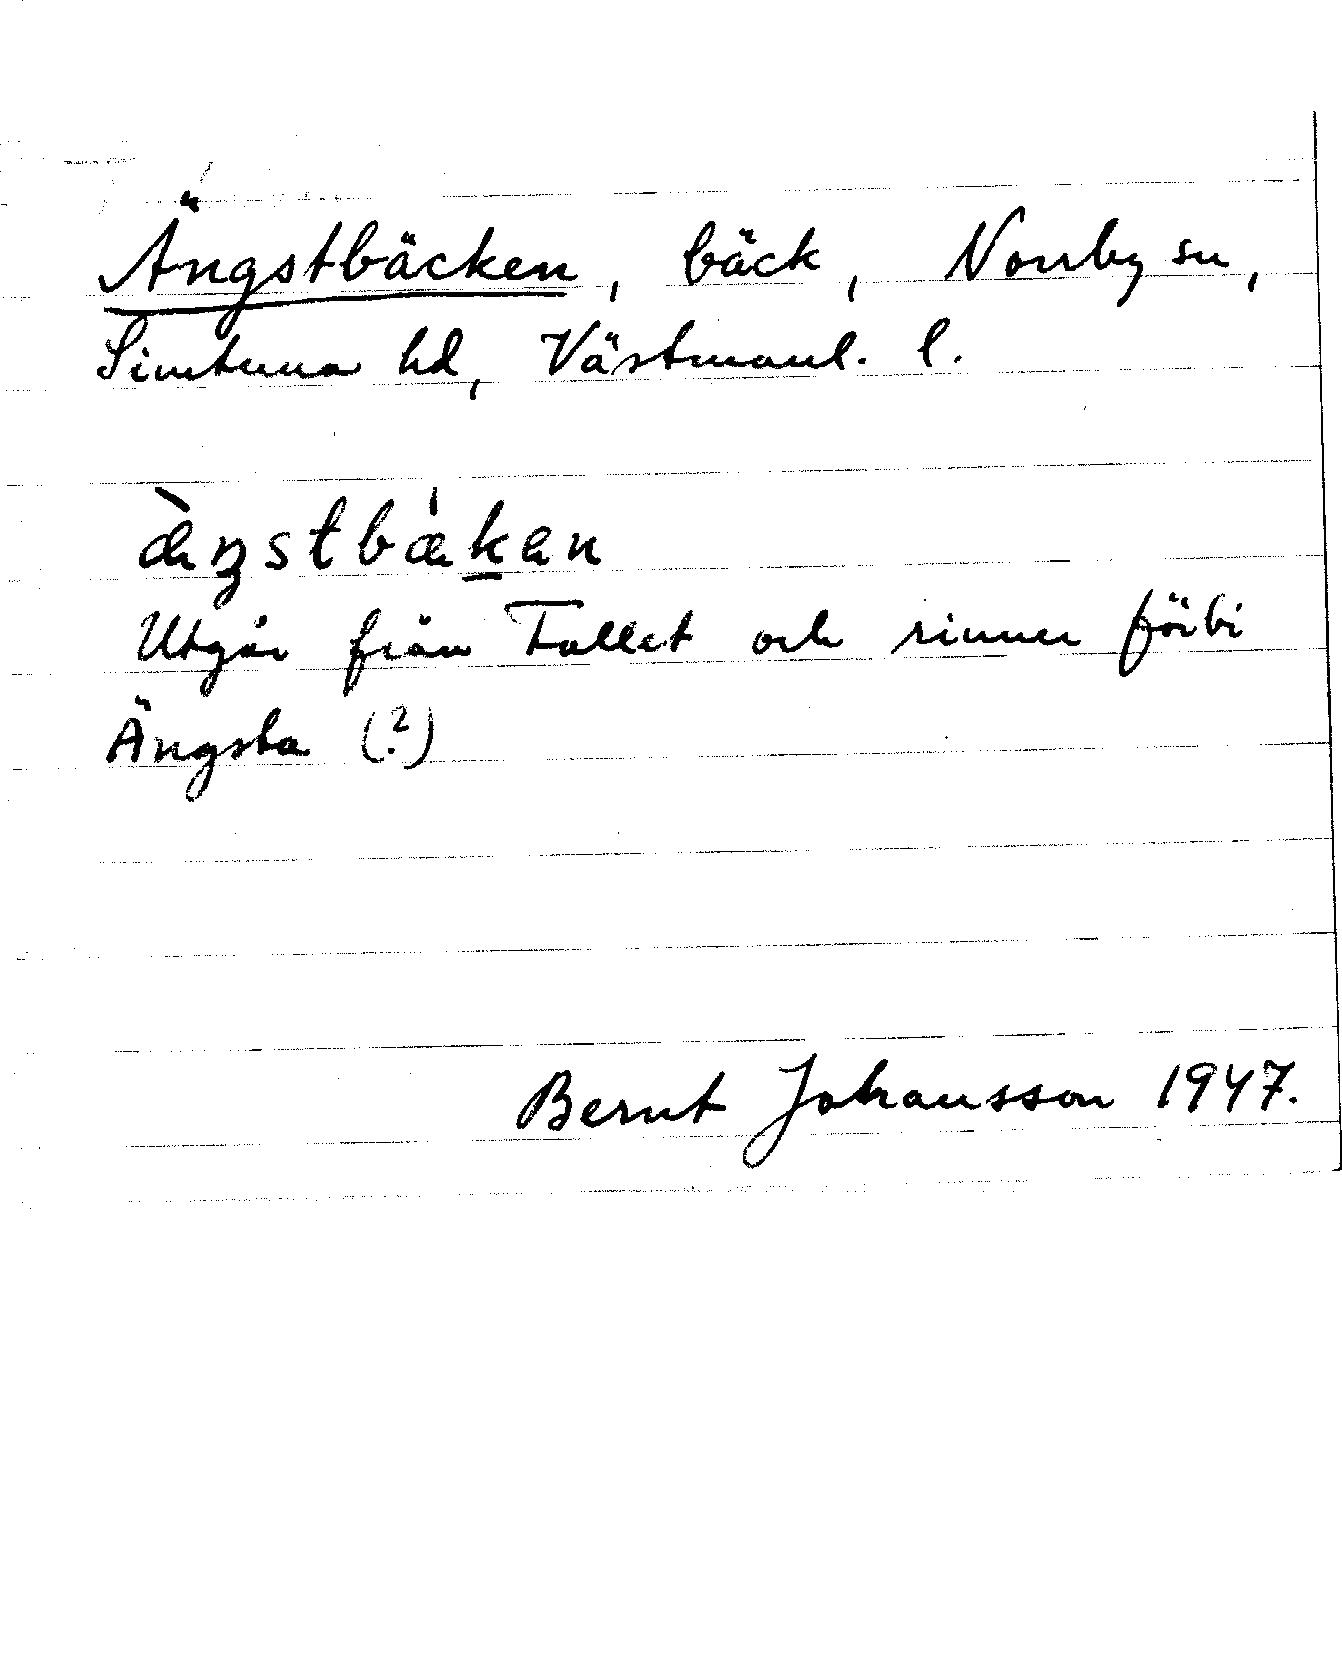 Ängstbäcken, bäck, Norrby sn,
Simtuna hd, Västmanl. l.
æ̀ŋstbǽkan
Utgår från Tallet och rinner förbi
Ängsba (?)
Bernt Johansson 1947.